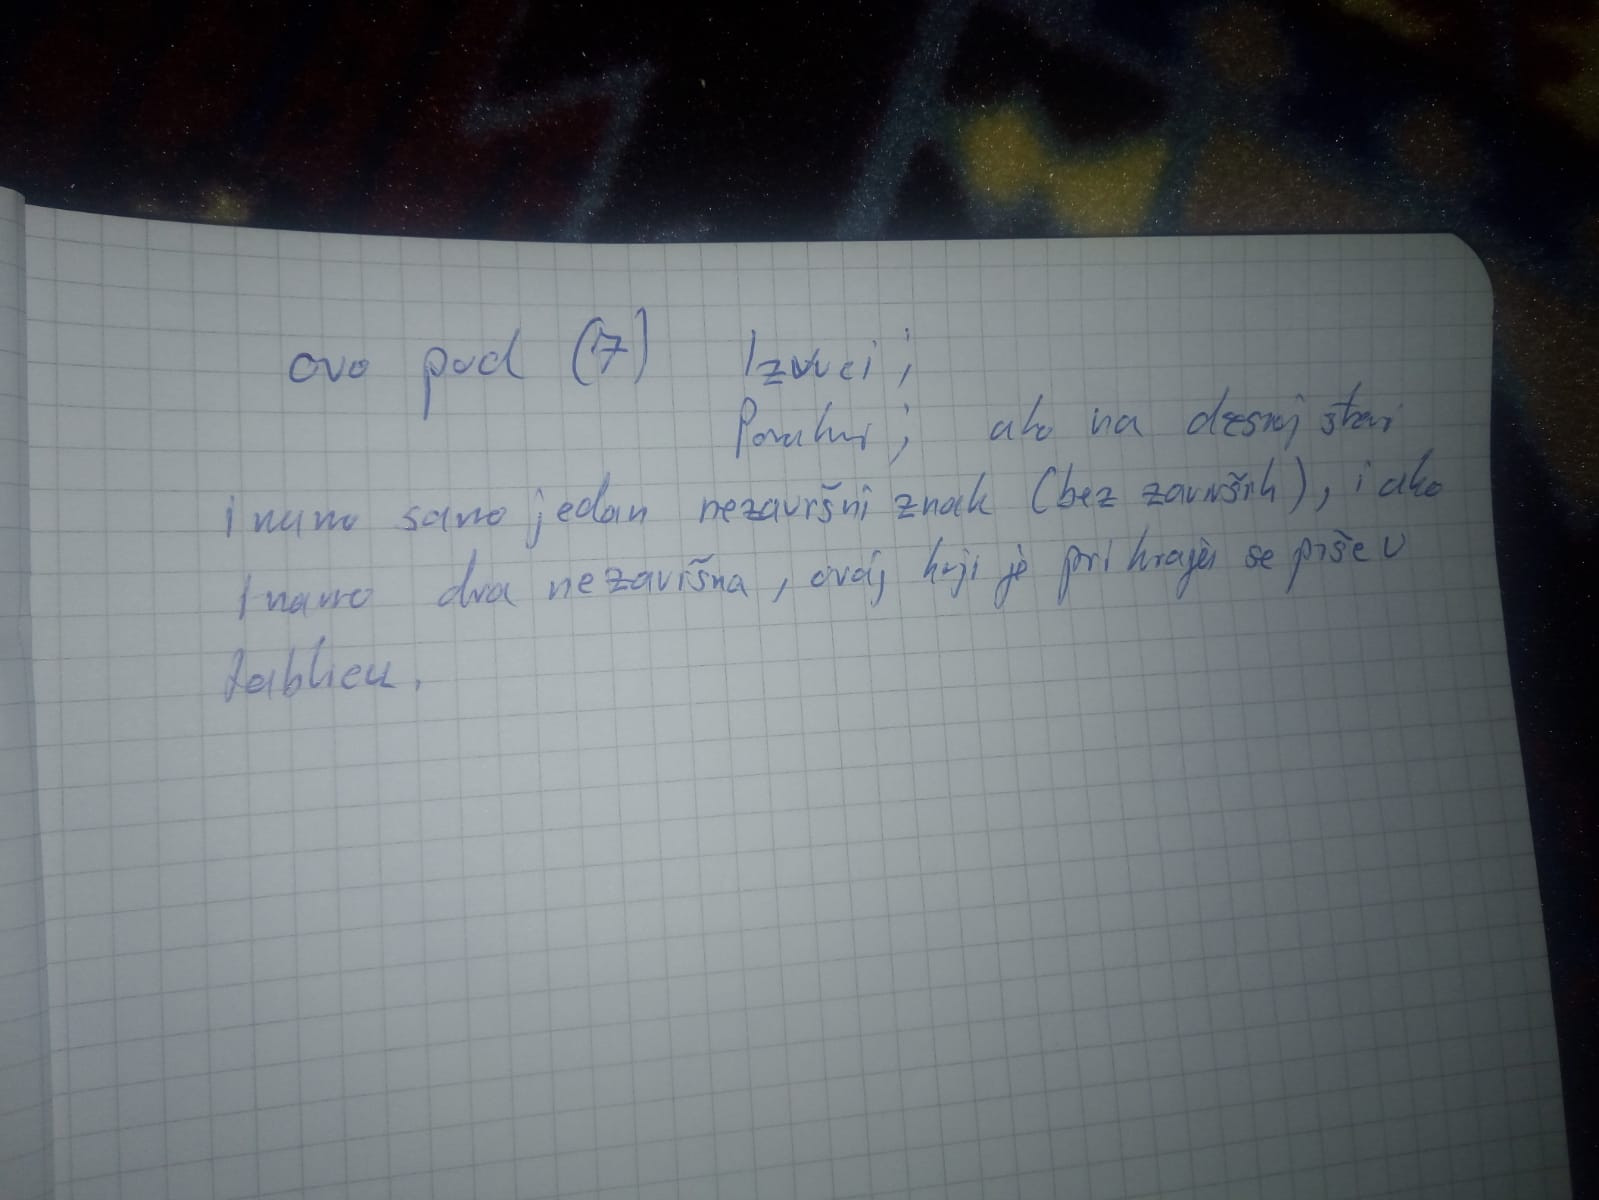 ovo pod (7) Izvuci;
Pomakni; ako na desnoj strani
imamo samo jedan nezavršni znak (bez završnih), i ako
imamo dva nezavršna, ovaj koji je pri kraju se piše u
tablicu.